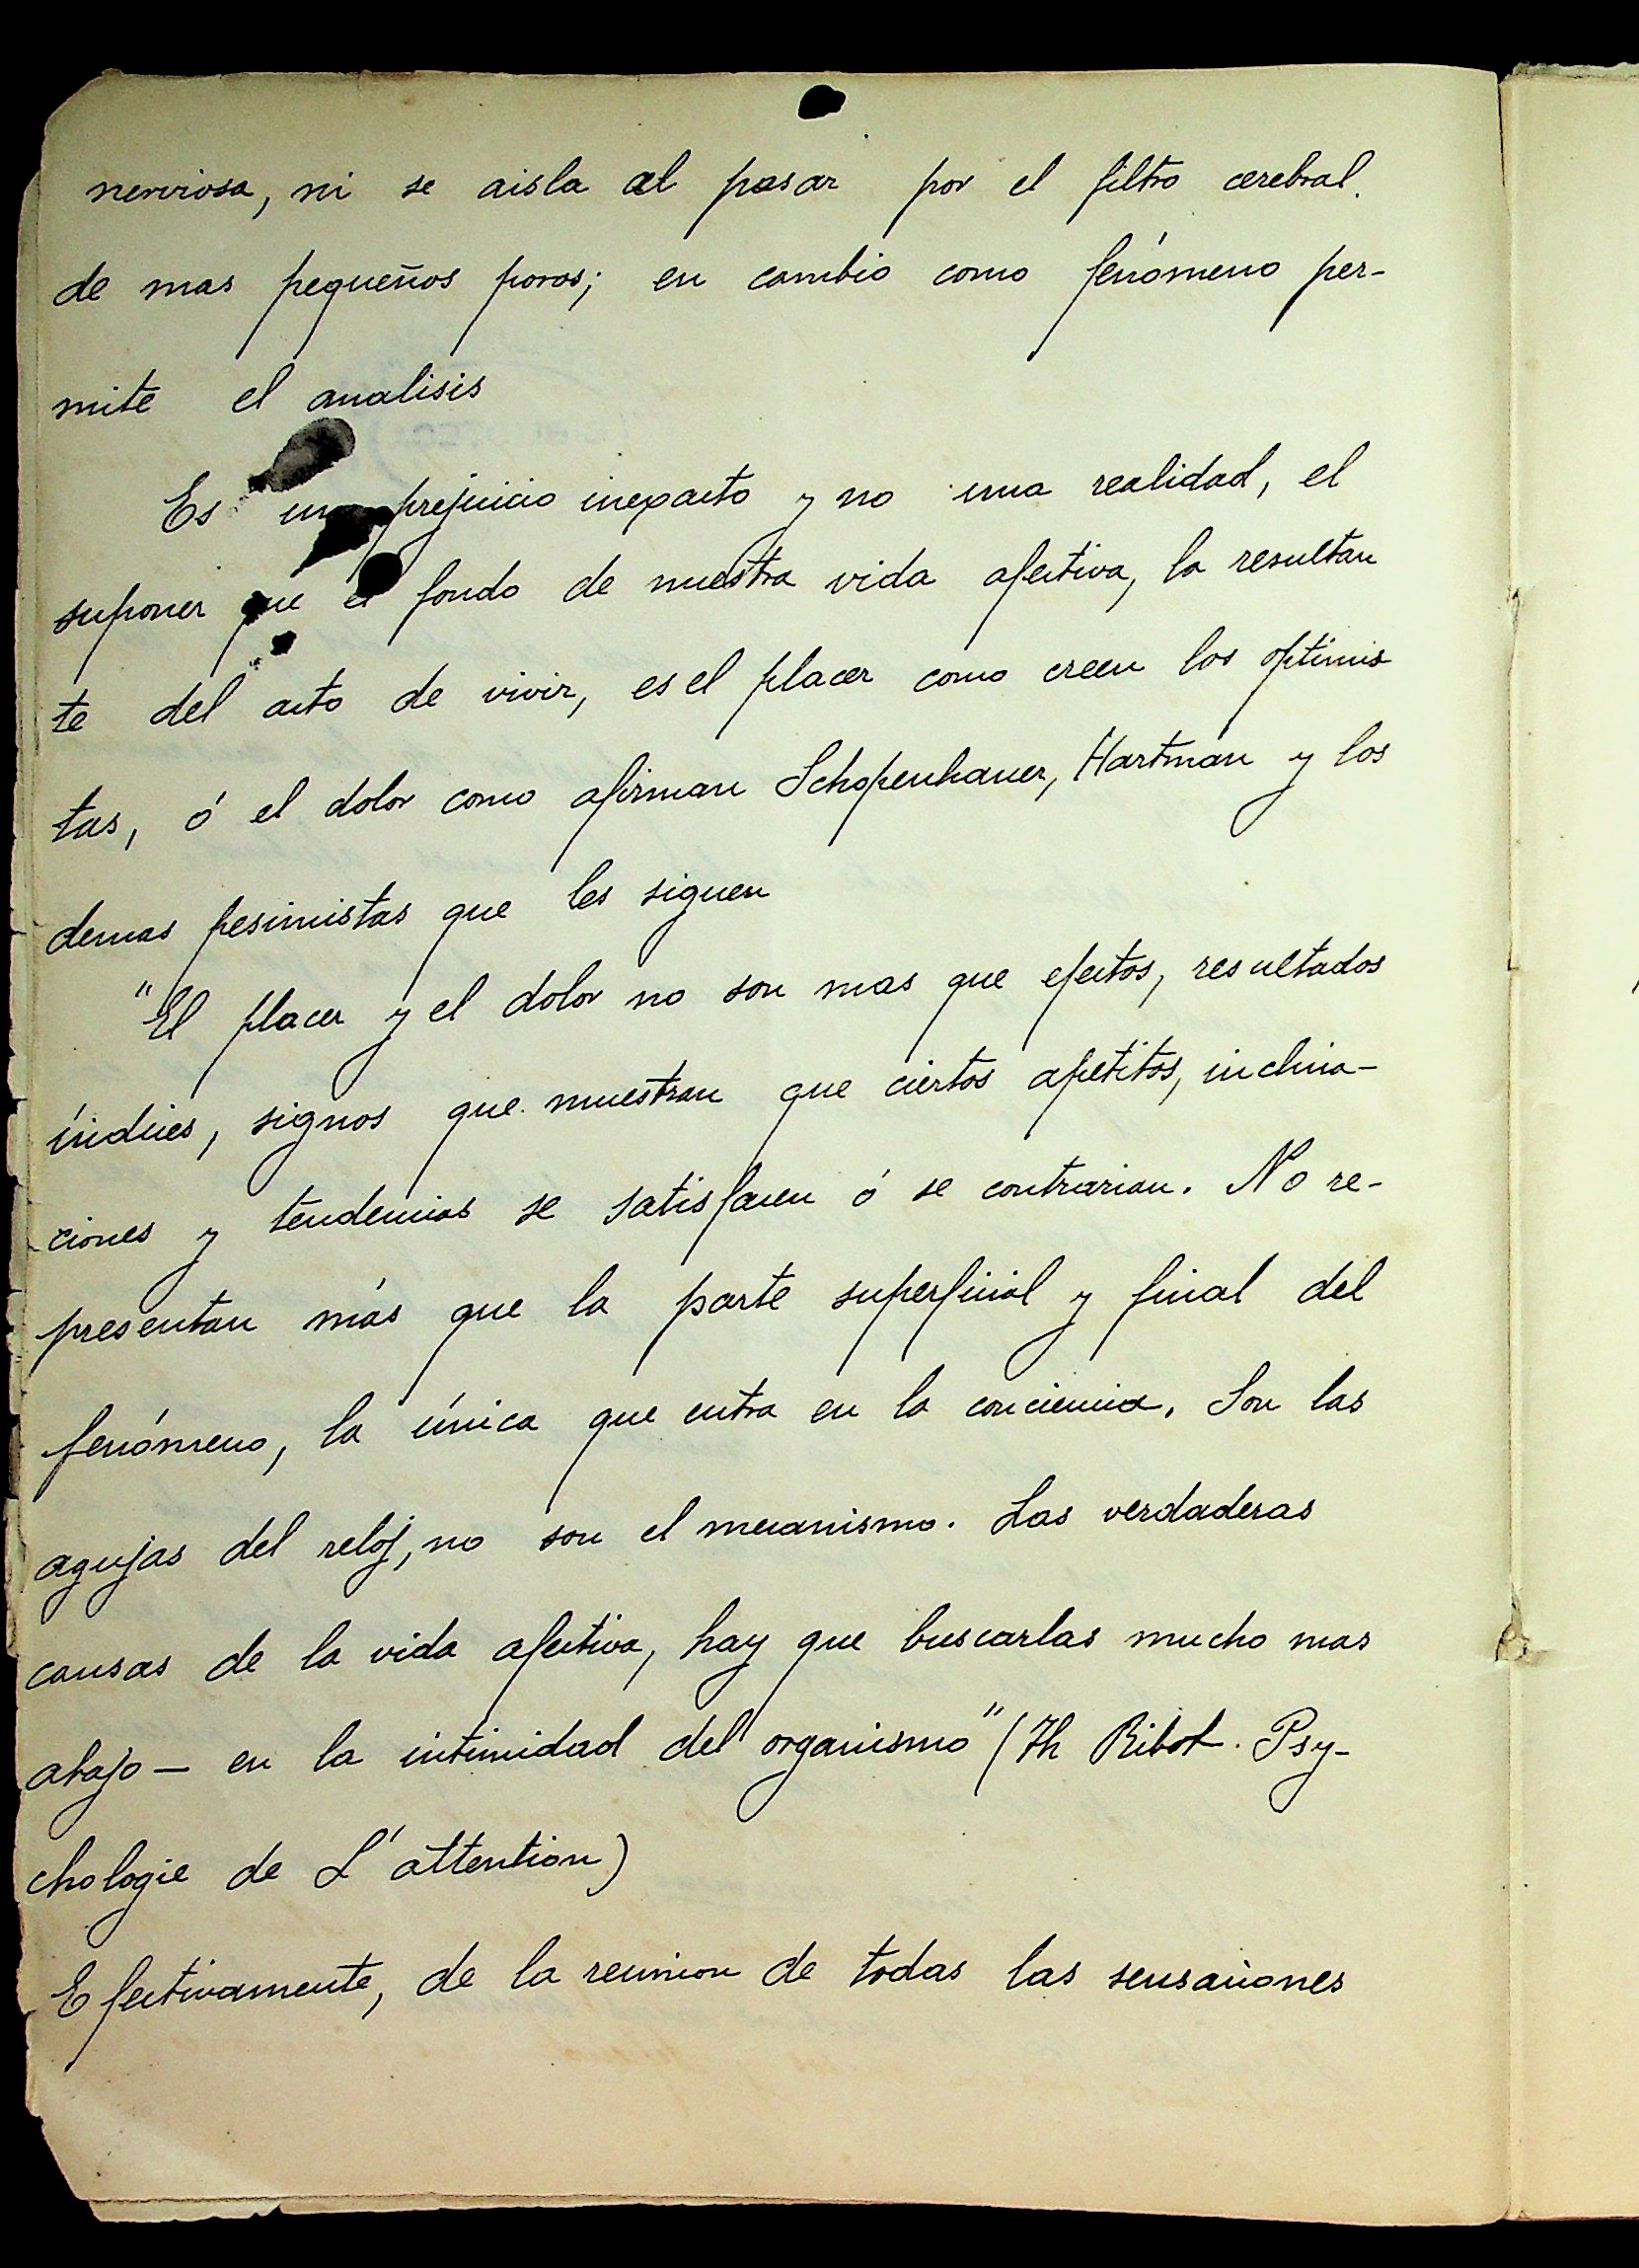 nerviosa, ni se aisla al pasar por el filtro cerebral.
de mas pequeños poros; en cambio como fenómeno per-
mite el analisis
Es un prejuicio inexacto y no una realidad, el
suponer que el fondo de nuestra vida afectiva, la resultan
te del acto de vivir, es el placer como creen los optimis
tas, ó el dolor como afirman Schopenhauer, Hartman y los
demas pesimistas que les siguen
"El placer y el dolor no son mas que efectos, resultados
índices, signos que muestran que ciertos apetitos, inclina-
ciones y tendencias se satisfacen ó se contrarian. No re-
presentan más que la parte superficial y final del
fenómeno, la única que entra en la conciencia. Son las
agujas del reloj, no son el mecanismo. Las verdaderas
causas de la vida afectiva, hay que buscarlas mucho mas
abajo — en la intimidad del organismo" (Th Ribot. Psy-
chologie de L'attention)
Efectivamente, de la reunion de todas las sensaciones